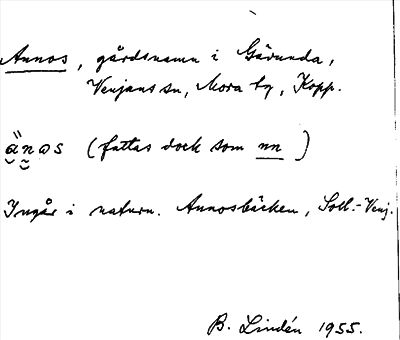 Annos, gårdsnamn i Gärunda,
Venjans sn, Mora tg, Kopp.
änos (fattas dock som nn)
Ingår i naturn. Annosbäcken, Soll.-Venj.
B. Lindén 1955.